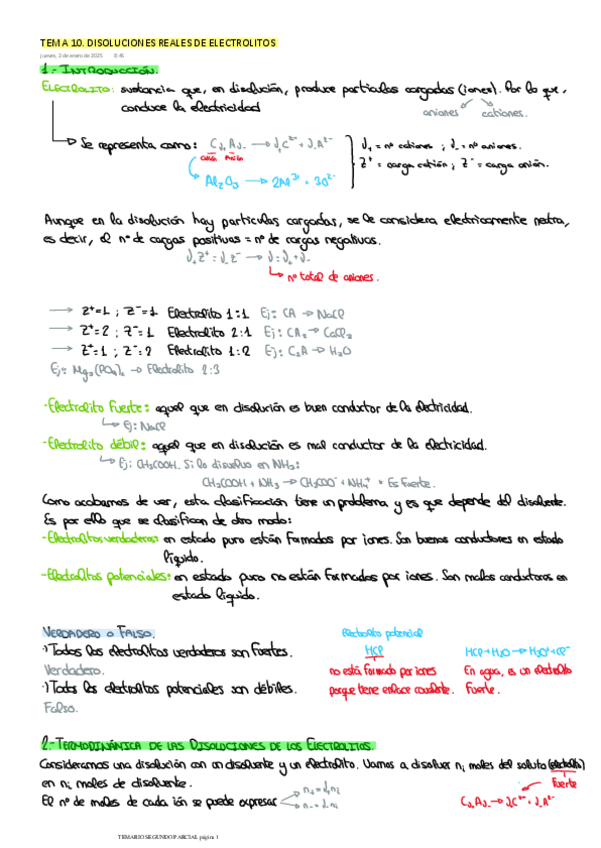 TEMA 10. DISOLUCIONES REALES DE ELECTROLITOS
jueves, 2 de enero de 2025 8:45
1.- INTRODUCCIÓN.
ELECTROLITO: sustancia que, en disolución, produce partículas cargadas (iones). Por lo que,
conduce la electricidad
aniones cationes.
Se representa como:
catión Anión
ν₊ = nº cationes ; ν₋ = nº aniones.
Z⁺ = carga catión ; Z⁻ = carga anión.
Al₂O₃ → 2Al³⁺ + 3O²⁻
Aunque en la disolución hay partículas cargadas, se le considera eléctricamente neutra,
es decir, el nº de cargas positivas = nº de cargas negativas.
ν₊Z⁺ = ν₋Z⁻ → ν = ν₊ + ν₋
nº total de aniones.
→ Z⁺=1 ; Z⁻=1 Electrolito 1:1 Ej: CA → NaCl
→ Z⁺=2 ; Z⁻=1 Electrolito 2:1 Ej: CA₂ → CaCl₂
→ Z⁺=1 ; Z⁻=2 Electrolito 1:2 Ej: C₂A → H₂O
Ej: Mg₃(PO₄)₂ → Electrolito 2:3
·Electrolito Fuerte: aquel que en disolución es buen conductor de la electricidad.
Ej: NaCl
·Electrolito débil: aquel que en disolución es mal conductor de la electricidad.
Ej: CH₃COOH. Si lo disuelvo en NH₃:
CH₃COOH + NH₃ → CH₃COO⁻ + NH₄⁺ Es Fuerte.
Como acabamos de ver, esta clasificación tiene un problema y es que depende del disolvente.
Es por ello que se clasifican de otro modo:
-Electrolitos verdaderos: en estado puro están formados por iones. Son buenos conductores en estado
líquido.
-Electrolitos potenciales: en estado puro no están formados por iones. Son malos conductores en
estado líquido.
VERDADERO O FALSO.
·) Todos los electrolitos verdaderos son fuertes.
Verdadero.
·) Todos los electrolitos potenciales son débiles.
Falso.
Electrolito potencial
HCl
no está formado por iones
porque tiene enlace covalente.
HCl + H₂O → H₃O⁺ + Cl⁻
En agua, es un electrolito
Fuerte.
2.- TERMODINÁMICA DE LAS DISOLUCIONES DE LOS ELECTROLITOS.
Consideramos una disolución con un disolvente y un electrolito. Vamos a disolver moles del soluto (electrolito)
en n₁ moles de disolvente.
Fuerte
El nº de moles de cada ión se puede expresar
TEMARIO SEGUNDO PARCIAL página 1